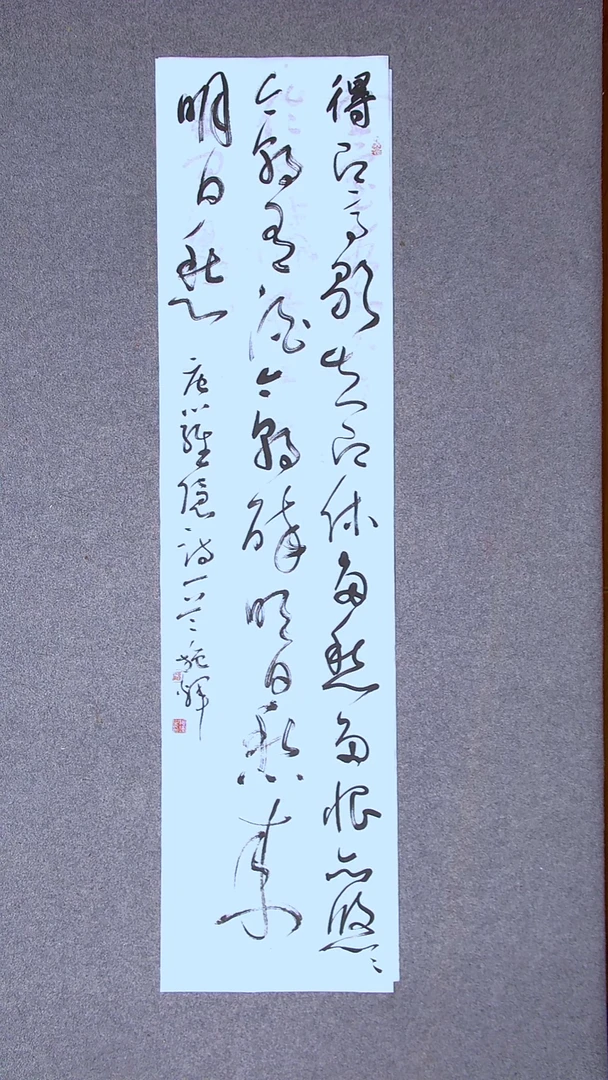 得即高歌失即休多愁多恨亦悠〻
今朝有酒今朝醉明日愁来
明日愁
唐羅隱詩一首輝